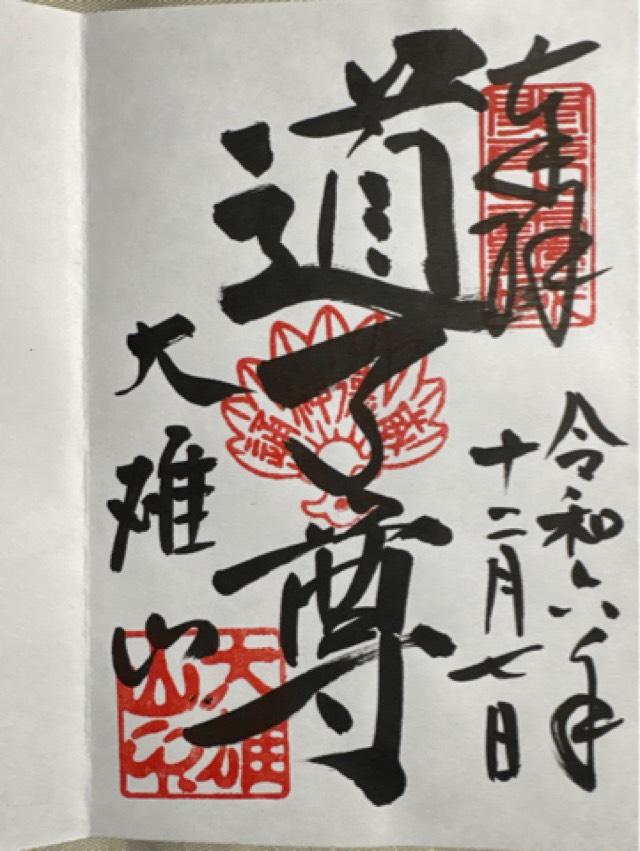 奉拝
令和六年
十二月七日
道了尊
大雄山
大雄
山印